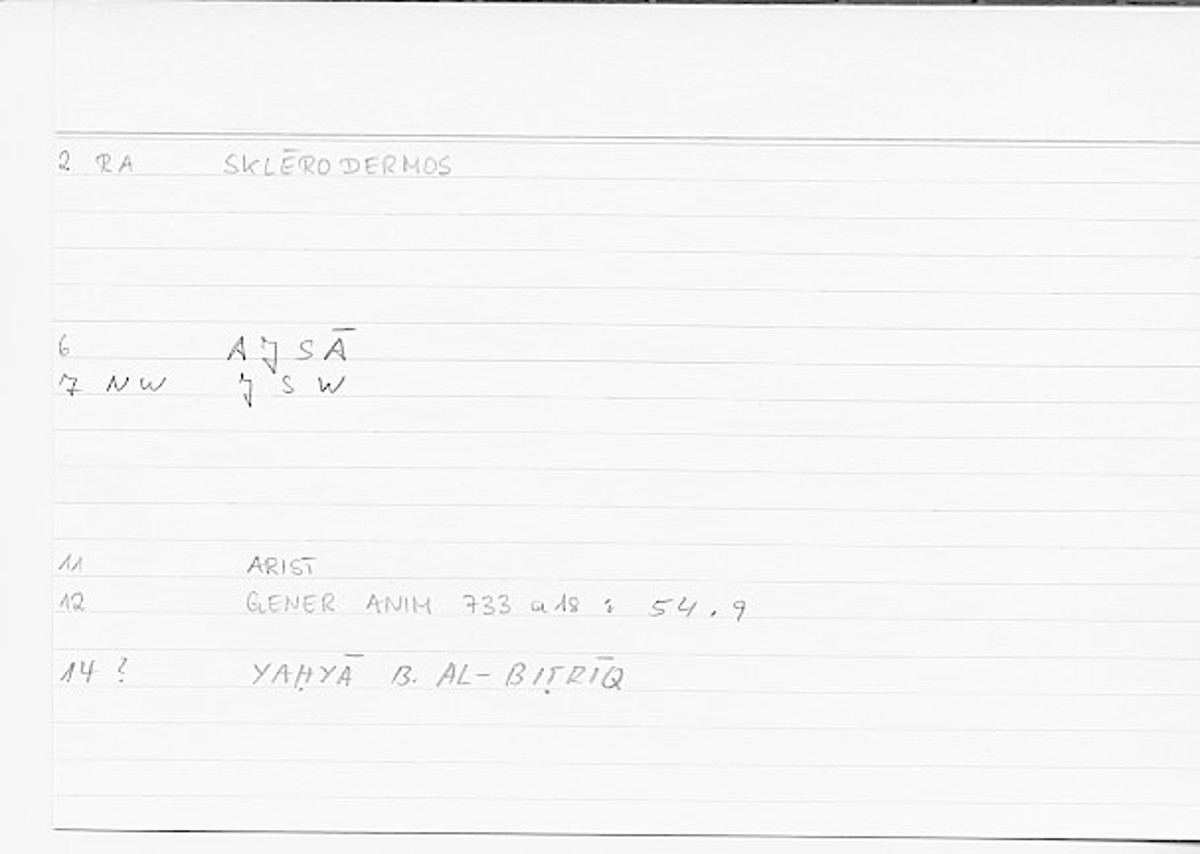 2 RA SKLĒRODERMOS
6 A J S Ā
7 NW J S W
11 ARIST
12 GENER ANIM 733 a 18 : 54.9
14 ? YAḤYĀ B. AL-BIṬRĪQ